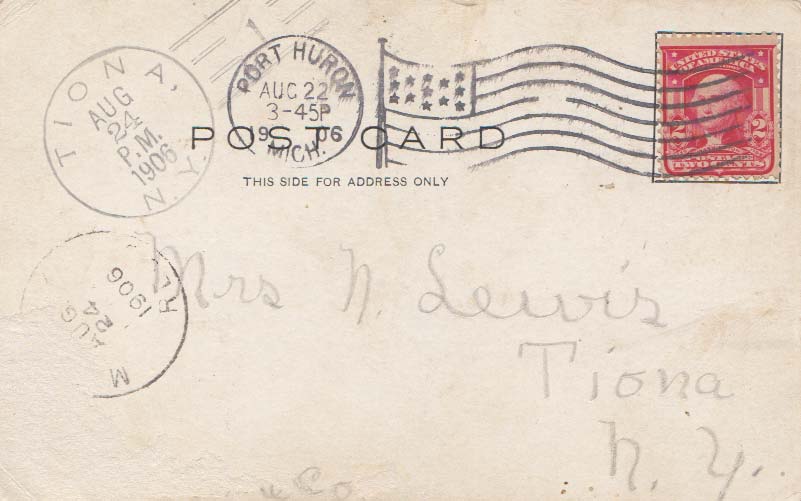 TIONA, N.Y.
AUG
24
P.M.
1906
PORT HURON
AUG 22
3-45P
1906
MICH.
UNITED STATES
OF AMERICA
2 2
POSTAGE
TWO CENTS
POST CARD
THIS SIDE FOR ADDRESS ONLY
AUG
24
1906
M
Mrs N. Lewis
Tiona
N. Y.
Co